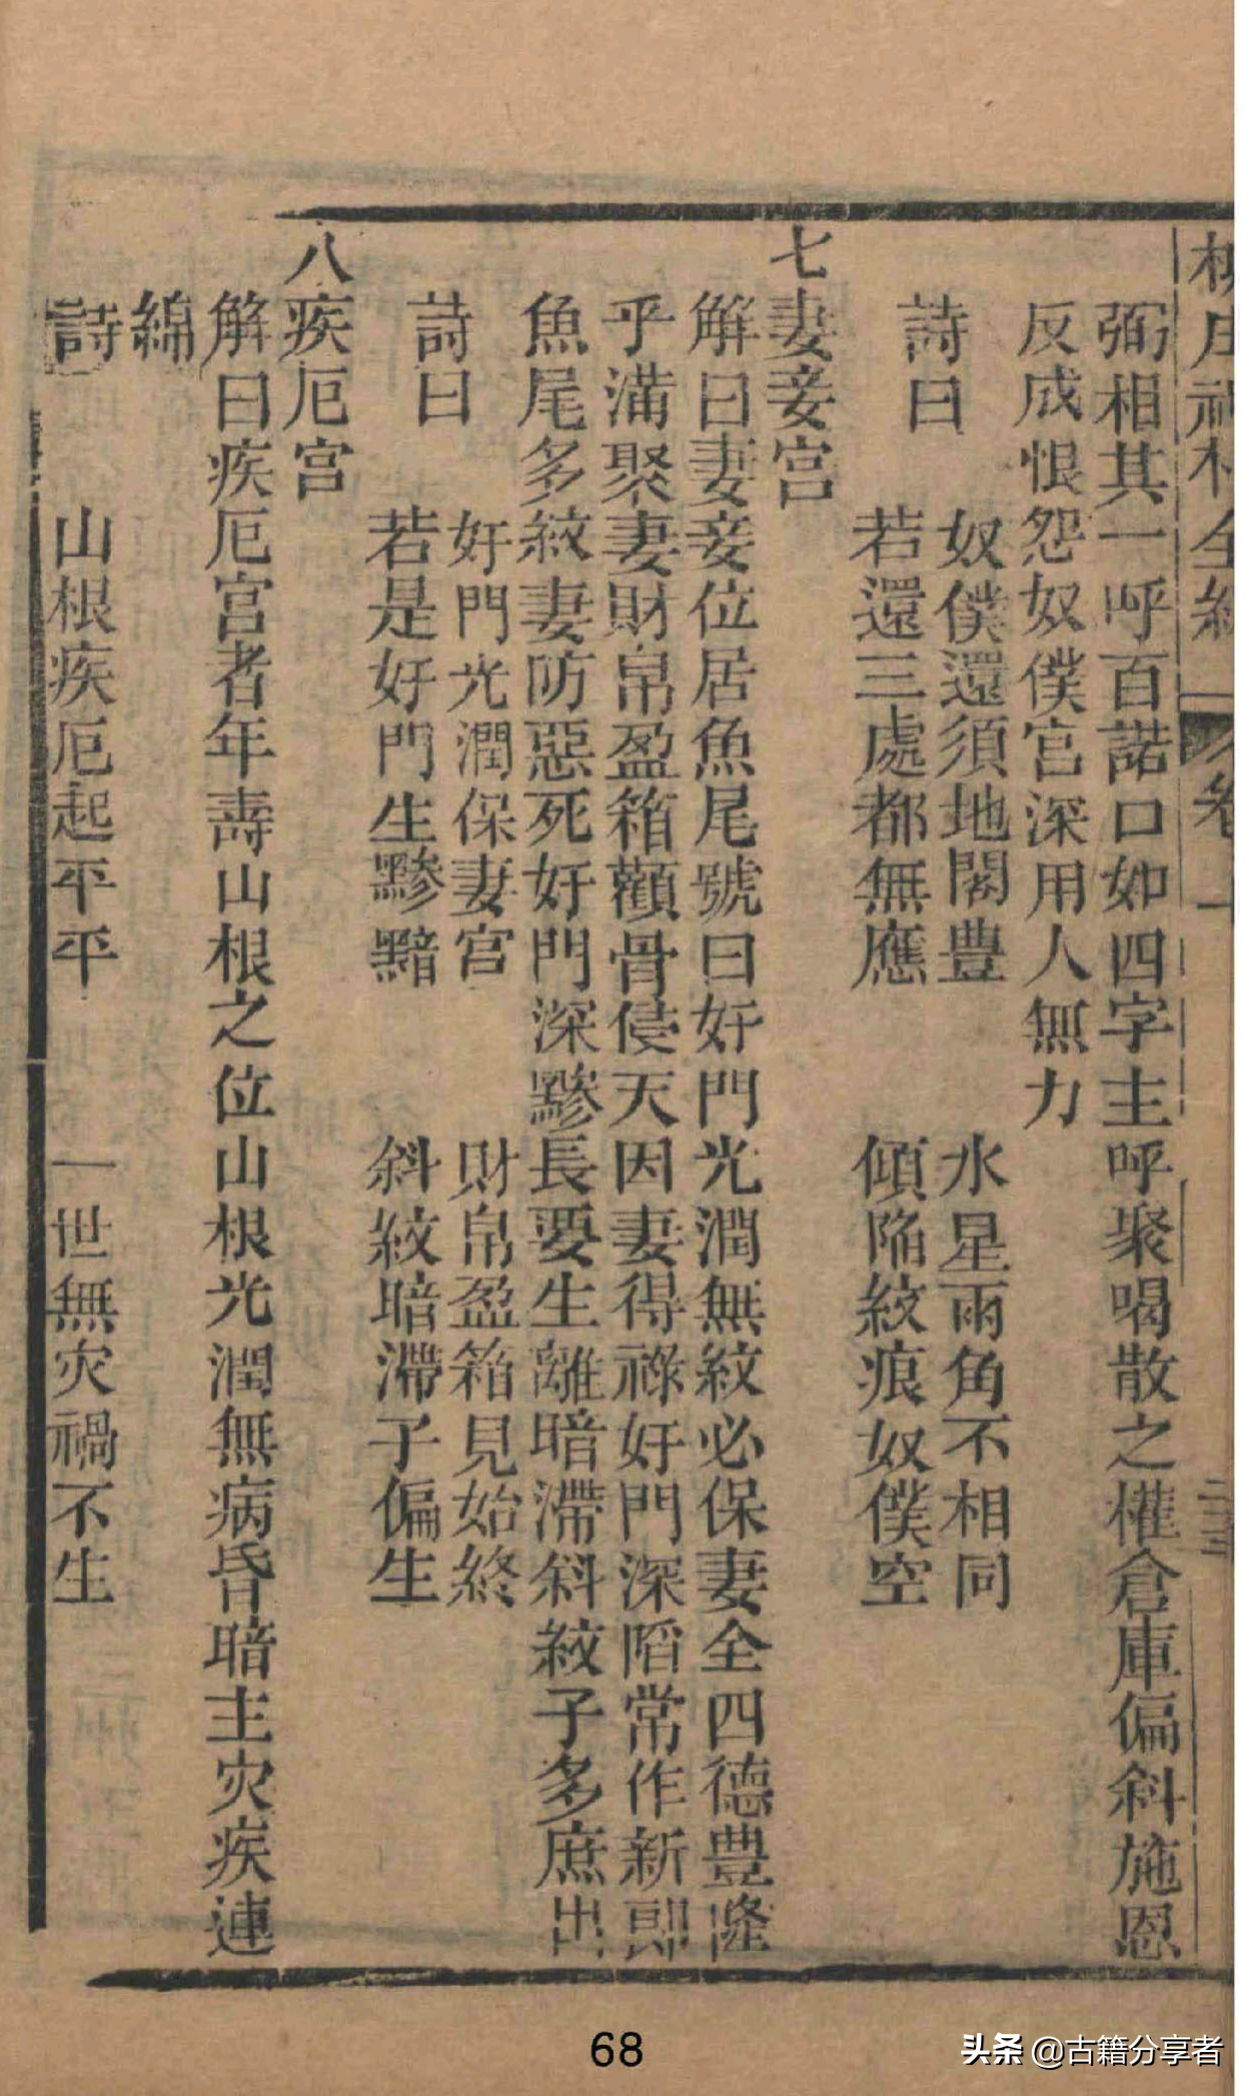 弼相其一呼百諾口如四字主呼聚喝散之權倉庫偏斜施恩
反成恨怨奴僕宮深用人無力
詩曰 奴僕還須地閣豊 水星兩角不相同
若還三處都無應 傾陷紋痕奴僕空
七妻妾宮
解曰妻妾位居魚尾號曰奸門光潤無紋必保妻全四德豊隆
乎滿聚妻財帛盈箱顴骨侵天因妻得祿奸門深陷常作新郎
魚尾多紋妻防惡死奸門深黲長要生離暗滯斜紋子多庶出
詩曰 奸門光潤保妻宮 財帛盈箱見始終
若是奸門生黲黯 斜紋暗滯子偏生
八疾厄宮
解曰疾厄宮者年壽山根之位山根光潤無病昏暗主灾疾連
綿
詩 山根疾厄起平平 一世無灾禍不生
68
头条 @古籍分享者